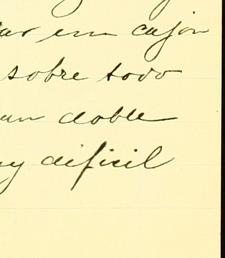 en cajón
sobre todo
un doble
dificil